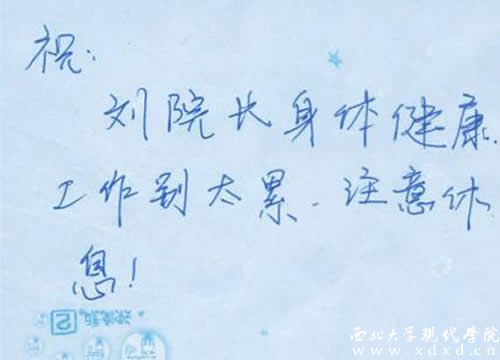 祝:
刘院长身体健康.
工作别太累.注意休
息!
西北大学现代学院
www.xdxd.cn